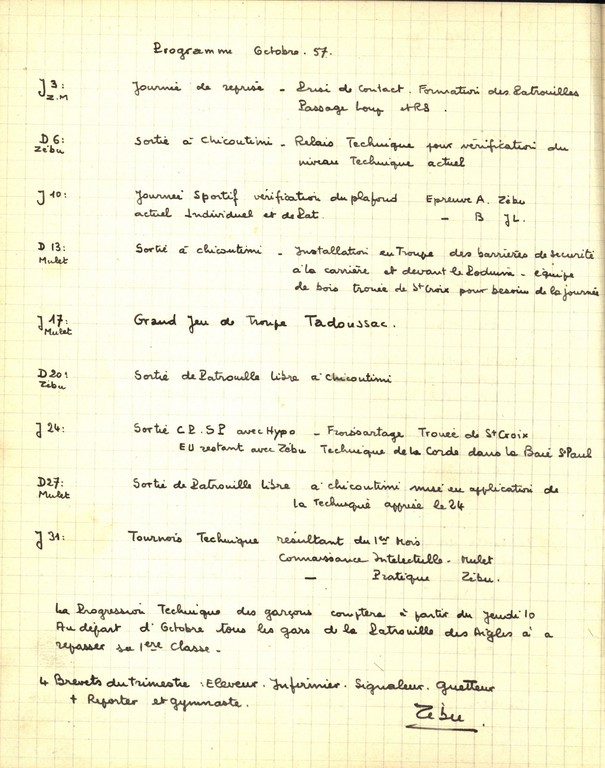 Programme Octobre. 57.
J 3: Journée de reprise - Prise de Contact. Formation des Patrouilles
Z.M Passage Loup et RS.
D 6: Sortie à Chicoutimi - Relais Technique pour vérification du
Zébu niveau Technique actuel
J 10: Journée Sportif vérification du plafond Epreuve A. Zébu
actuel Individuel et de Pat. — B JL.
D 13: Sortie à chicoutimi - Installation en Troupe des barrières de sécurité
Mulet à la carrière et devant le Podium - équipe
de bois trouée de St Croix pour besoin de la journée
J 17: Grand Jeu de Troupe Tadoussac.
Mulet
D 20: Sortie de Patrouille libre à Chicoutimi
Zébu
J 24: Sortie C.P. S.P avec Hypo - Froissartage Trouée de St Croix
EU restant avec Zébu Technique de la Corde dans la Baie St Paul
D 27: Sortie de Patrouille libre à chicoutimi mise en application de
Mulet la Technique apprise le 24
J 31: Tournois Technique résultant du 1er Mois
Connaissance Intelectuelle - Mulet
— Pratique Zébu.
La Progression Technique des garçons comptera à partir du Jeudi 10
Au départ d'Octobre tous les gars de la Patrouille des Aigles à a
repasser sa 1ere Classe -
4 Brevets du trimestre. Eleveur. Infirmier. Signaleur. Guetteur
+ Reporter et gymnaste.
Zébu.